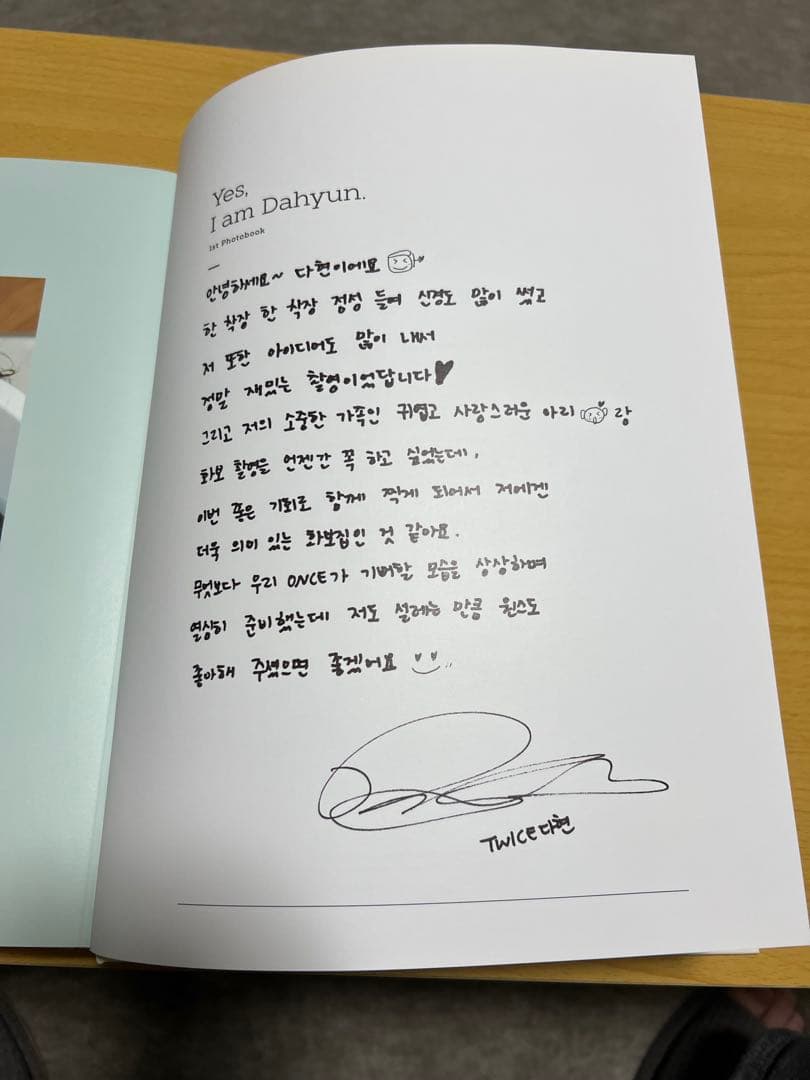 Yes,
I am Dahyun.
1st Photobook
안녕하세요~ 다현이에요
한 착장 한 착장 정성 들여 신경도 많이 썼고
저 또한 아이디어도 많이 내서
정말 재밌는 촬영이었답니다♥
그리고 저의 소중한 가족인 귀엽고 사랑스러운 아리 랑
화보 촬영을 언젠간 꼭 하고 싶었는데,
이번 좋은 기회로 함께 찍게 되어서 저에겐
더욱 의미 있는 화보집인 것 같아요.
무엇보다 우리 ONCE가 기뻐할 모습을 상상하며
열심히 준비했는데 저도 설레는 만큼 원스도
좋아해 주셨으면 좋겠어요
TWICE 다현